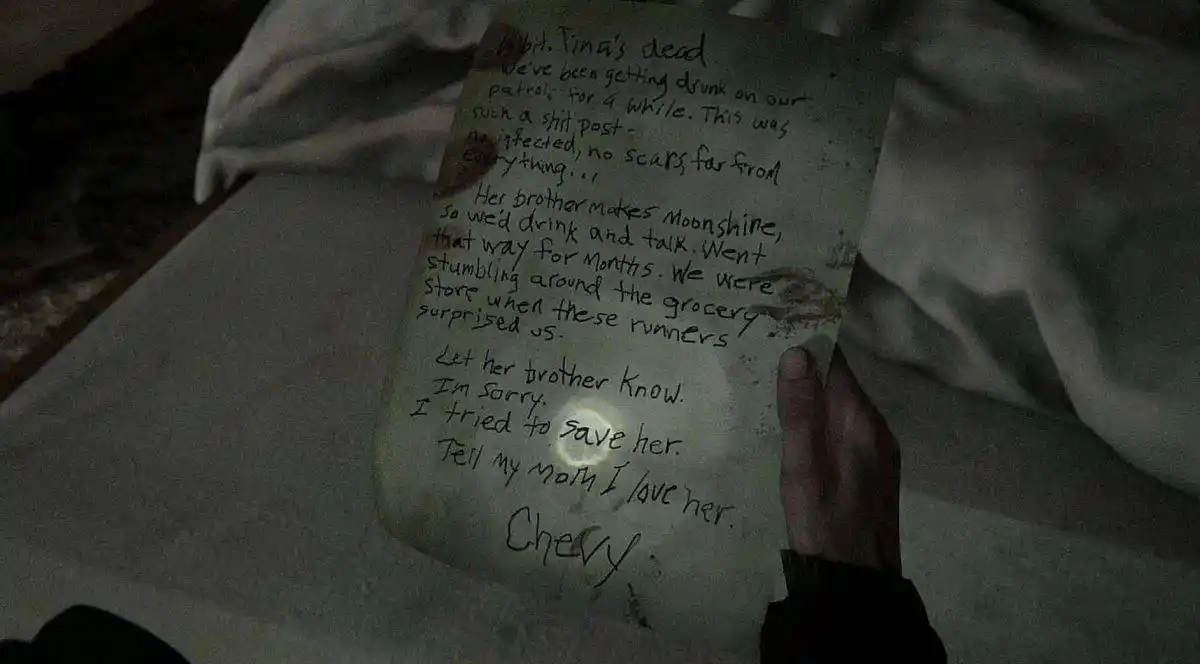 bit. Tina's dead
We've been getting drunk on our
patrols for a while. This was
such a shit post-
no infected, no scars, far from
everything...
Her brother makes Moonshine,
so we'd drink and talk. Went
that way for months. We were
stumbling around the grocery
store when these runners
surprised us.
Let her brother know.
I'm sorry.
I tried to save her.
Tell my mom I love her.
Chevy